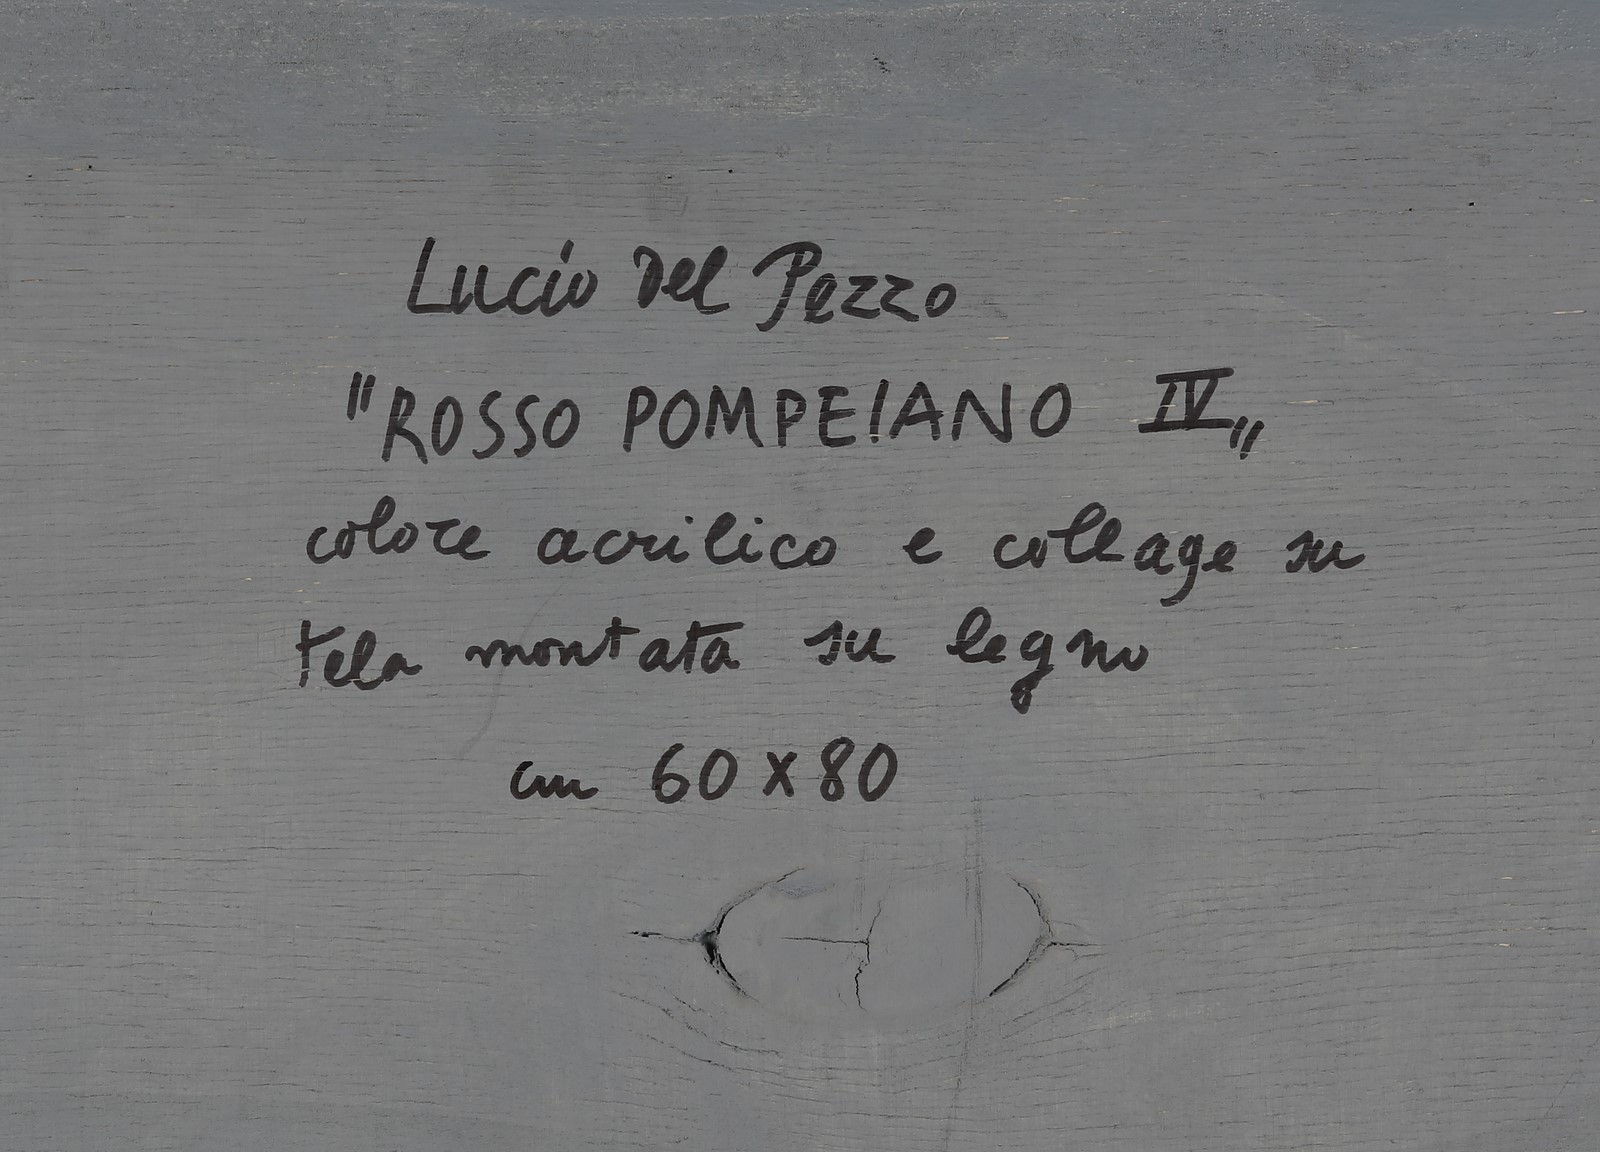 Lucio Del Pezzo
"ROSSO POMPEIANO IV"
colore acrilico e collage su
tela montata su legno
cm 60 x 80